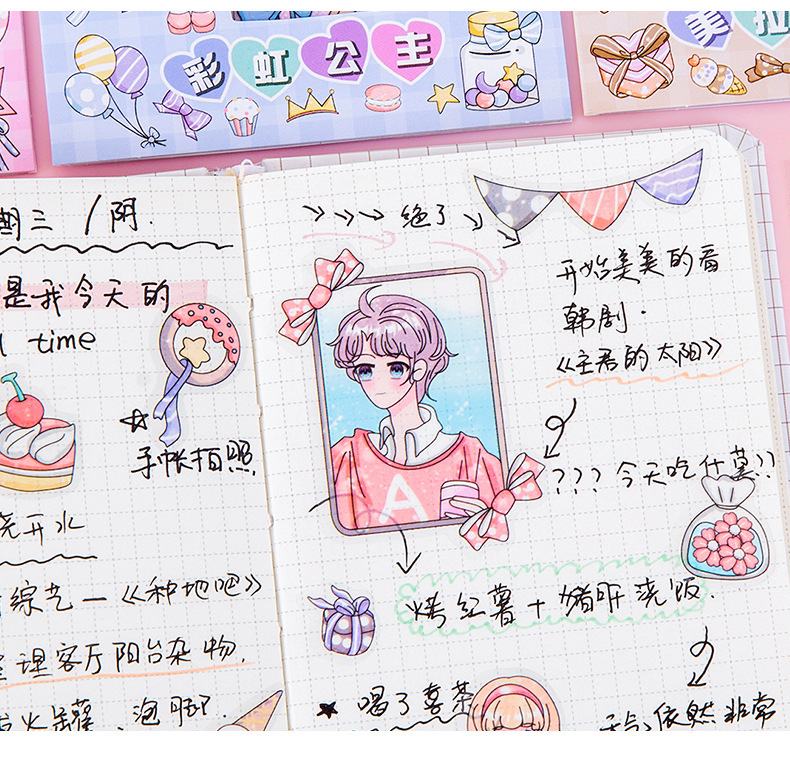 彩虹公主
美拉
期三 / 阴.
是我今天的
time
手帐拍照
烧开水
综艺—《种地吧》
整理客厅阳台杂物.
火罐、泡脚.
绝了
开始美美的看
韩剧.
《主君的太阳》
??? 今天吃什莫??
A
烤红薯+猪肝浇饭.
喝了姜茶
天气依然非常